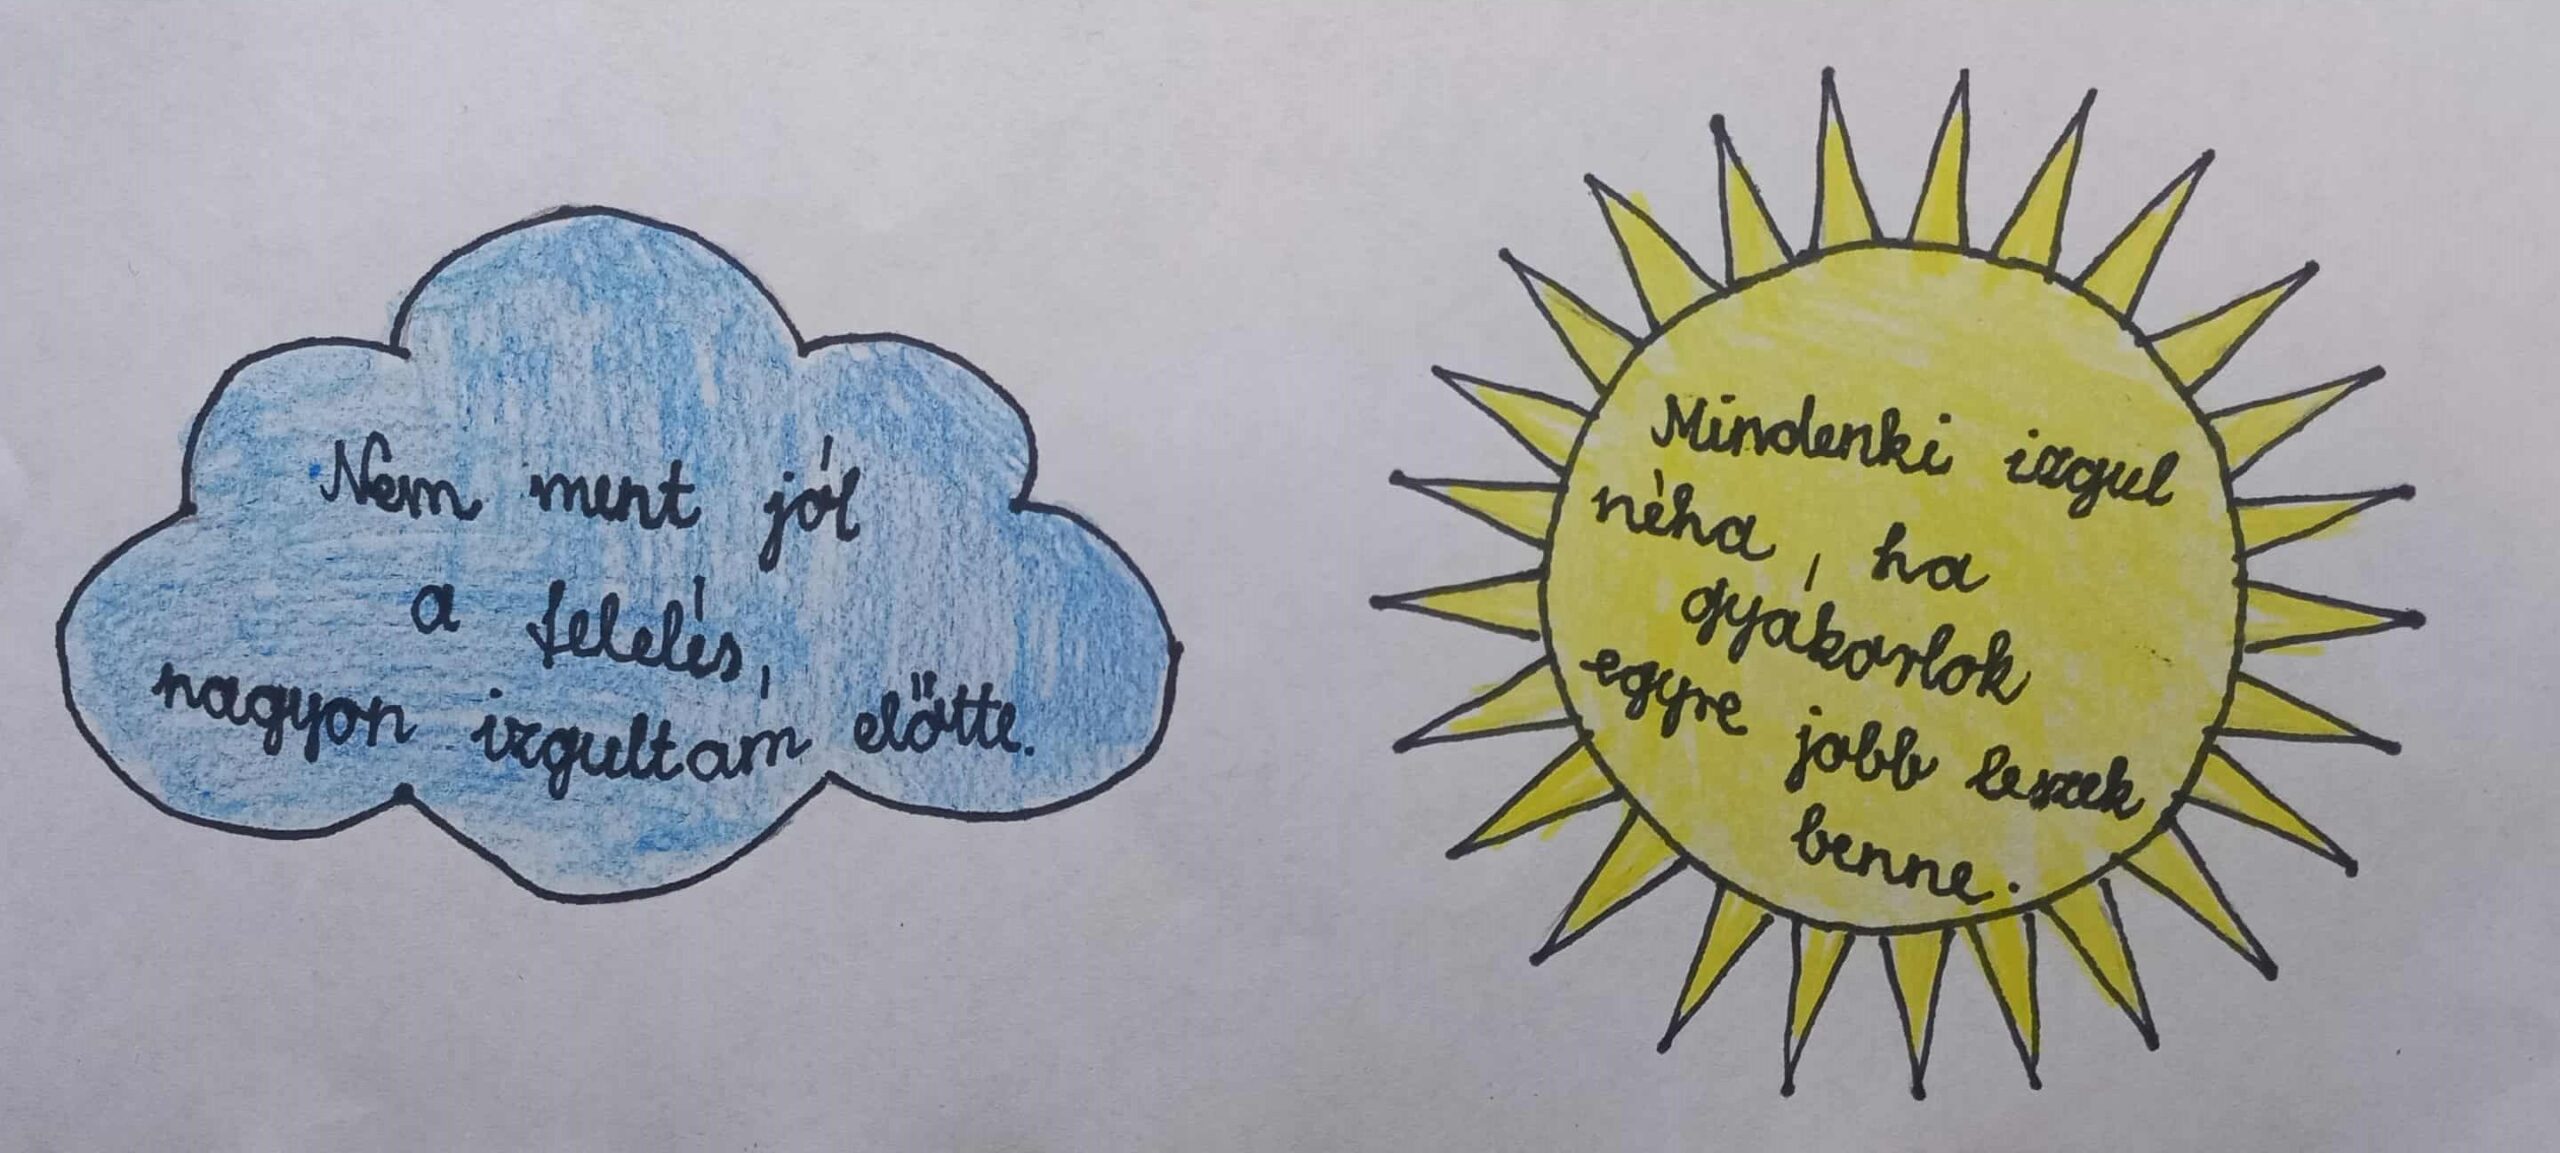 Nem ment jól
a felelés,
nagyon izgultam előtte.
Mindenki izgul
néha, ha
gyakorlok
egyre jobb leszek
benne.